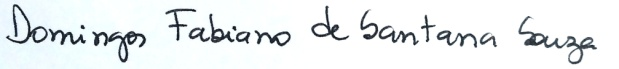 Domingos Fabiano de Santana Souza